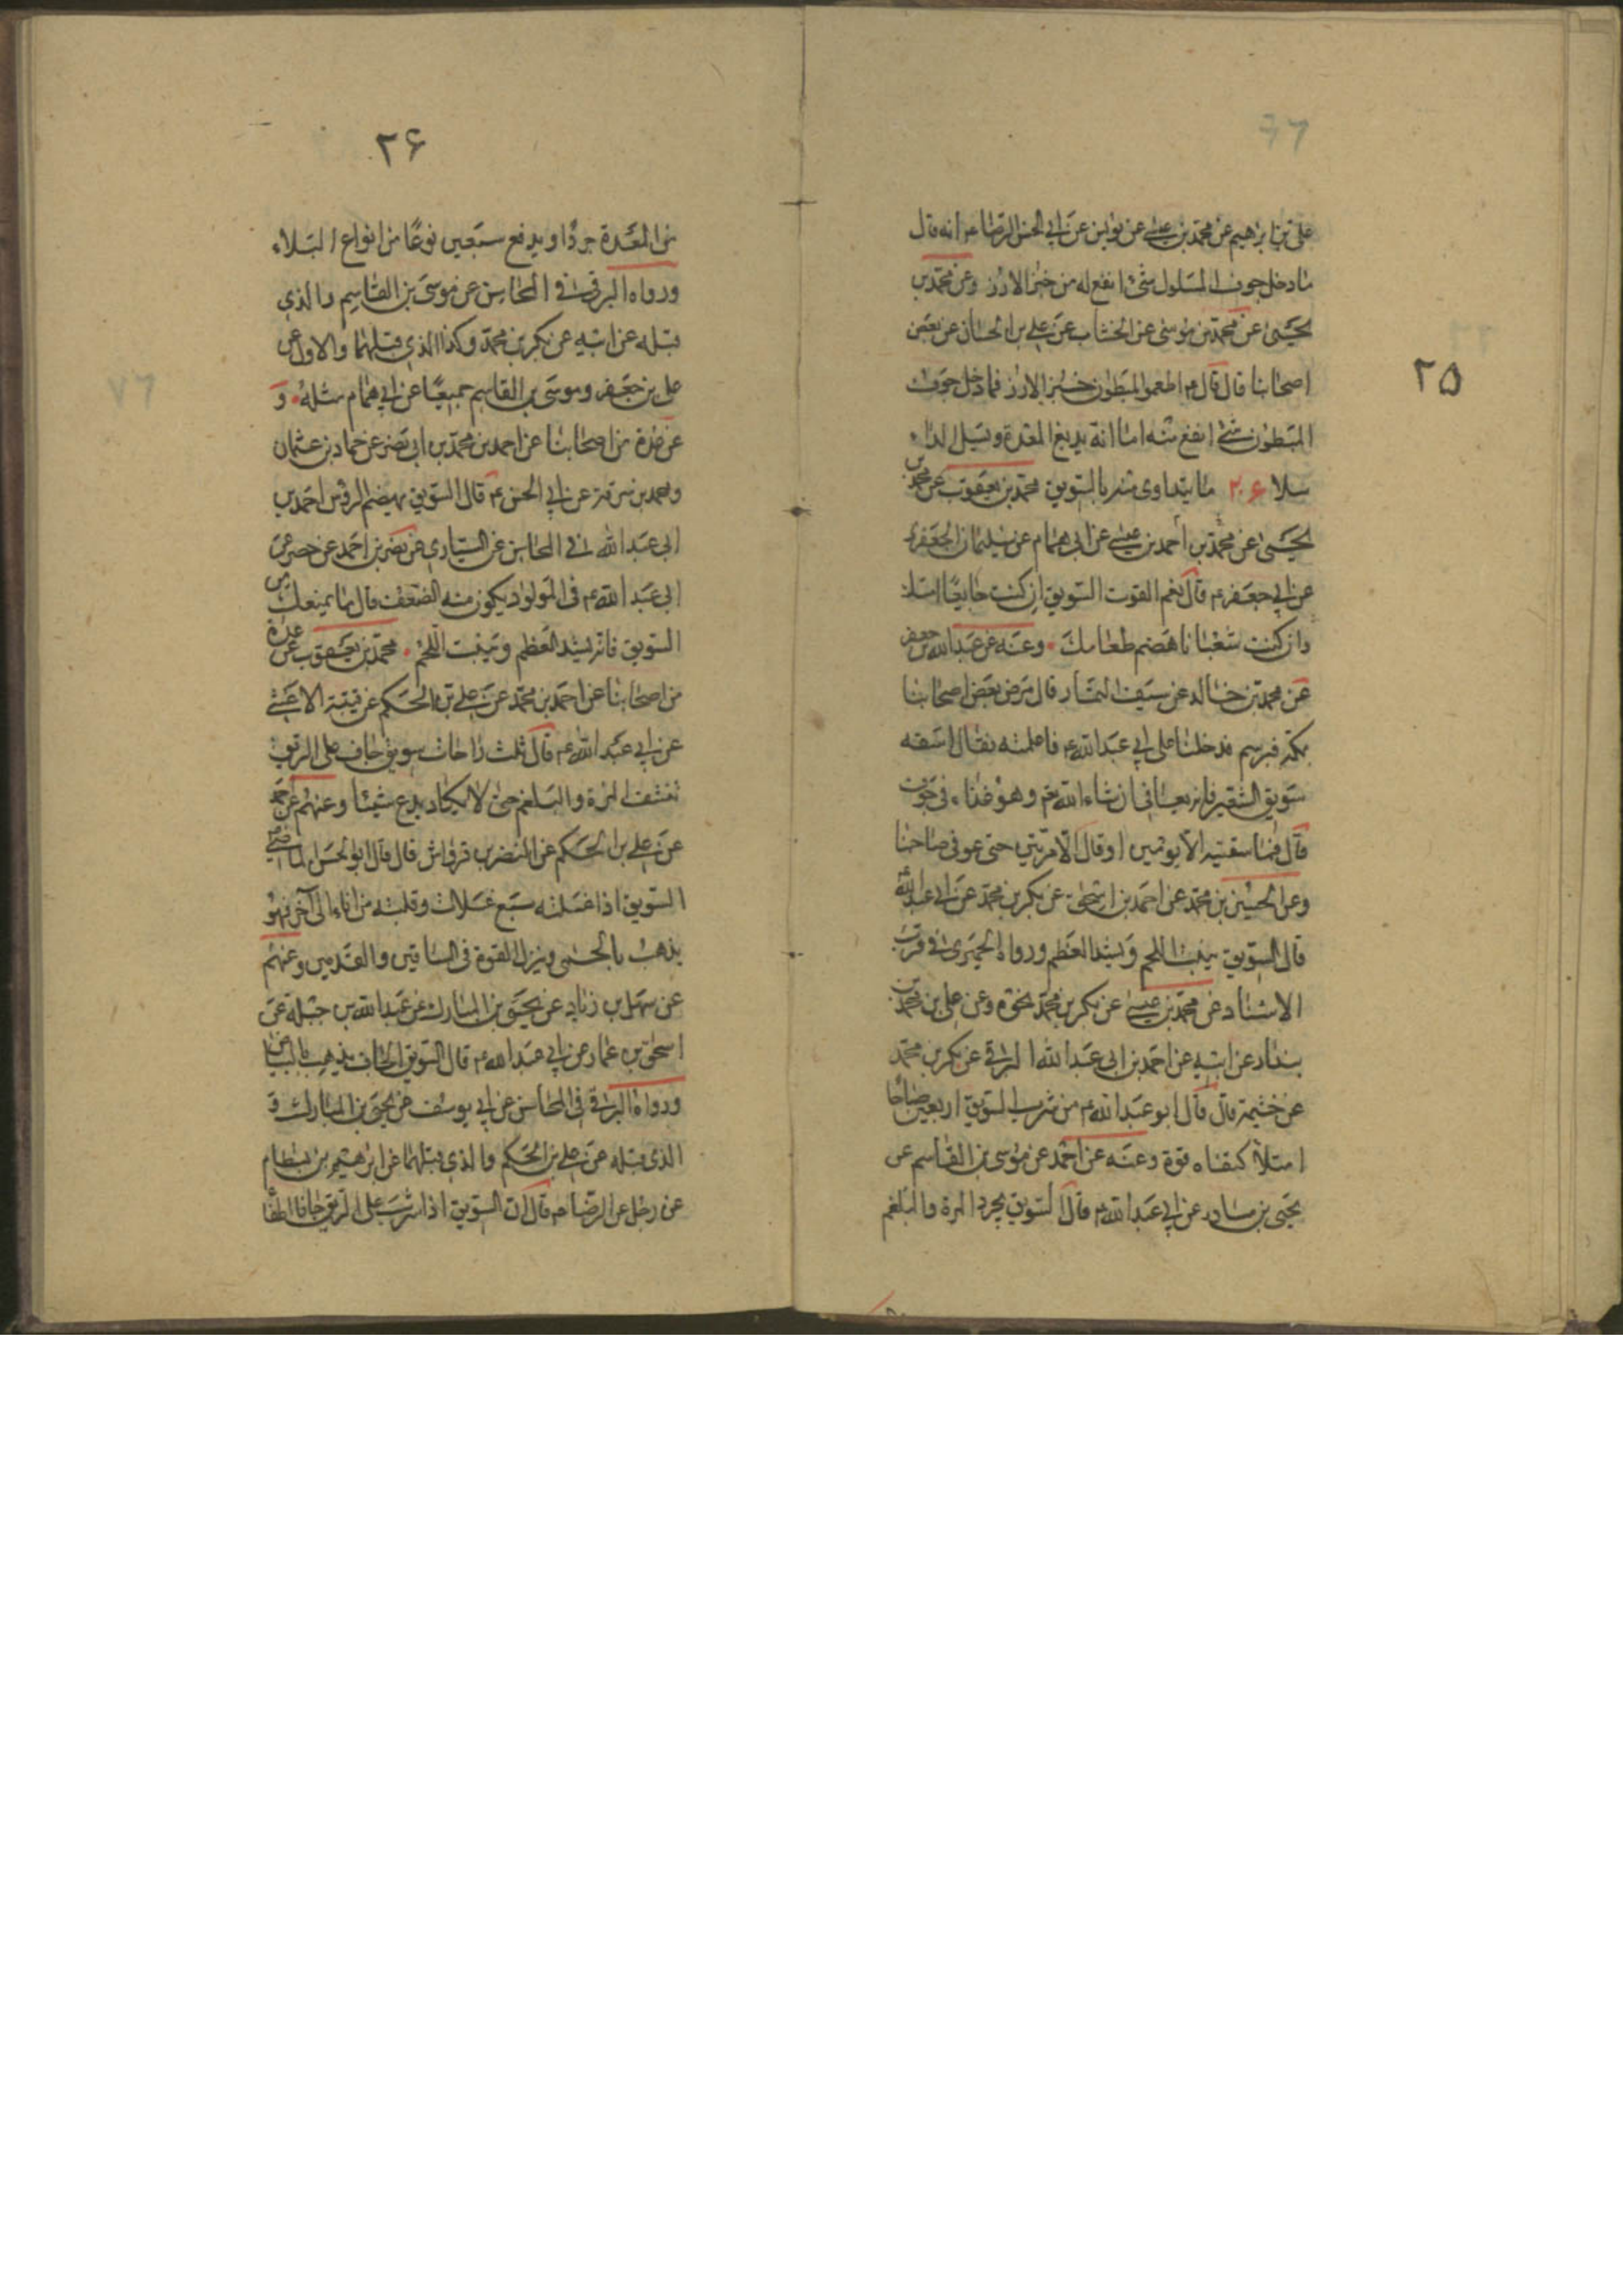 ٢٥
علي بن ابراهيم عن محمد بن عيسى عن يونس عن ابي الحسن الرضا ع انه قال
ما دخل جوف المسلول شئ انفع له من خبز الارز وعن محمد بن
يحيى عن محمد بن موسى عن الخشاب عن علي بن الحسان عن بعض
اصحابنا قال قال ع اطعموا المبطون خبز الارز فما دخل جوف
المبطون شئ انفع منه اما انه يدبغ المعدة ويسل الداء
سلا ٢٠۶ ما يتداوى منه بالسويق محمد بن يعقوب عن محمد بن
يحيى عن محمد بن أحمد بن عيسى عن ابي همام عن سليمان الجعفري
عن ابي جعفر ع قال نعم القوت السويق ان كنت جايعا امسك
وان كنت شبعانا هضم طعامك وعنه عن عبد الله بن جعفر
عن محمد بن خالد عن سيف التمار قال مرض بعض اصحابنا
بمكة فبرسم فدخلنا على ابي عبد الله ع فاعلمته فقال اسقه
سويق الشعير فانه يعافى ان شاء الله تم وهو غذاء في جوف
قال فما سقيته الا يومين او قال الا مرتين حتى عوفي صاحبنا
وعن الحسين بن محمد عن احمد بن اسحق عن بكر بن محمد عن ابي عبد الله
قال السويق ينبت اللحم ويشد العظم ورواه الحميري في قرب
الاسناد عن محمد بن عيسى عن بكر بن محمد نحوه وعن علي بن محمد بن
بندار عن ابيه عن احمد بن ابي عبد الله البرقي عن بكر بن محمد
عن خثيمة قال قال ابو عبد الله ع من شرب السويق اربعين صباحا
امتلأ كتفاه قوة وعنه عن احمد عن موسى بن القاسم عن
يحيى بن مساور عن ابي عبد الله ع قال السويق يجرد المرة والبلغم
٢۶
من المعدة جردا ويدفع سبعين نوعا من انواع البلاء
ورواه البرقي في المحاسن عن موسى بن القاسم والذي
قبله عن ابيه عن بكر بن محمد وكذا الذي قبلهما والاول عن
علي بن جعفر وموسى بن القاسم جميعا عن ابي همام مثله و
عن عدة من اصحابنا عن احمد بن محمد بن ابي نصر عن حماد بن عثمان
ومحمد بن سوقة عن ابي الحسن ع قال السويق يهضم الرؤس احمد بن
ابي عبد الله في المحاسن عن السياري عن نضر بن احمد عن
ابي عبد الله ع في المولود يكون منه الضعف قال ما يمنعك من
السويق فانه يشد العظم وينبت اللحم محمد بن يعقوب عن عدة
من اصحابنا عن احمد بن محمد عن علي بن الحكم عن قتيبة الاعشى
عن ابي عبد الله ع قال ثلث راحات سويق جاف على الريق
تنشف المرة والبلغم حتى لا يكاد يدع شيئا وعنهم عن احمد
عن علي بن الحكم عن النضر بن قرواش قال قال ابو الحسن الماضي ع
السويق اذا غسلته سبع غسلات وقلبته من اناء الى آخر فهو
يذهب بالحمى وينزل القوة في الساقين والقدمين وعنهم
عن سهل بن زياد عن يحيى بن المبارك عن عبد الله بن جبلة عن
اسحق بن عمار عن ابي عبد الله ع قال السويق الجاف يذهب بالبياض
ورواه البرقي في المحاسن عن ابي يوسف عن يحيى بن المبارك و
الذي قبله عن علي بن الحكم والذي قبلهما عن ابرهيم بن بسطام
عن رجل عن الرضا ع قال ان السويق اذا شرب على الريق جافا اطفأ